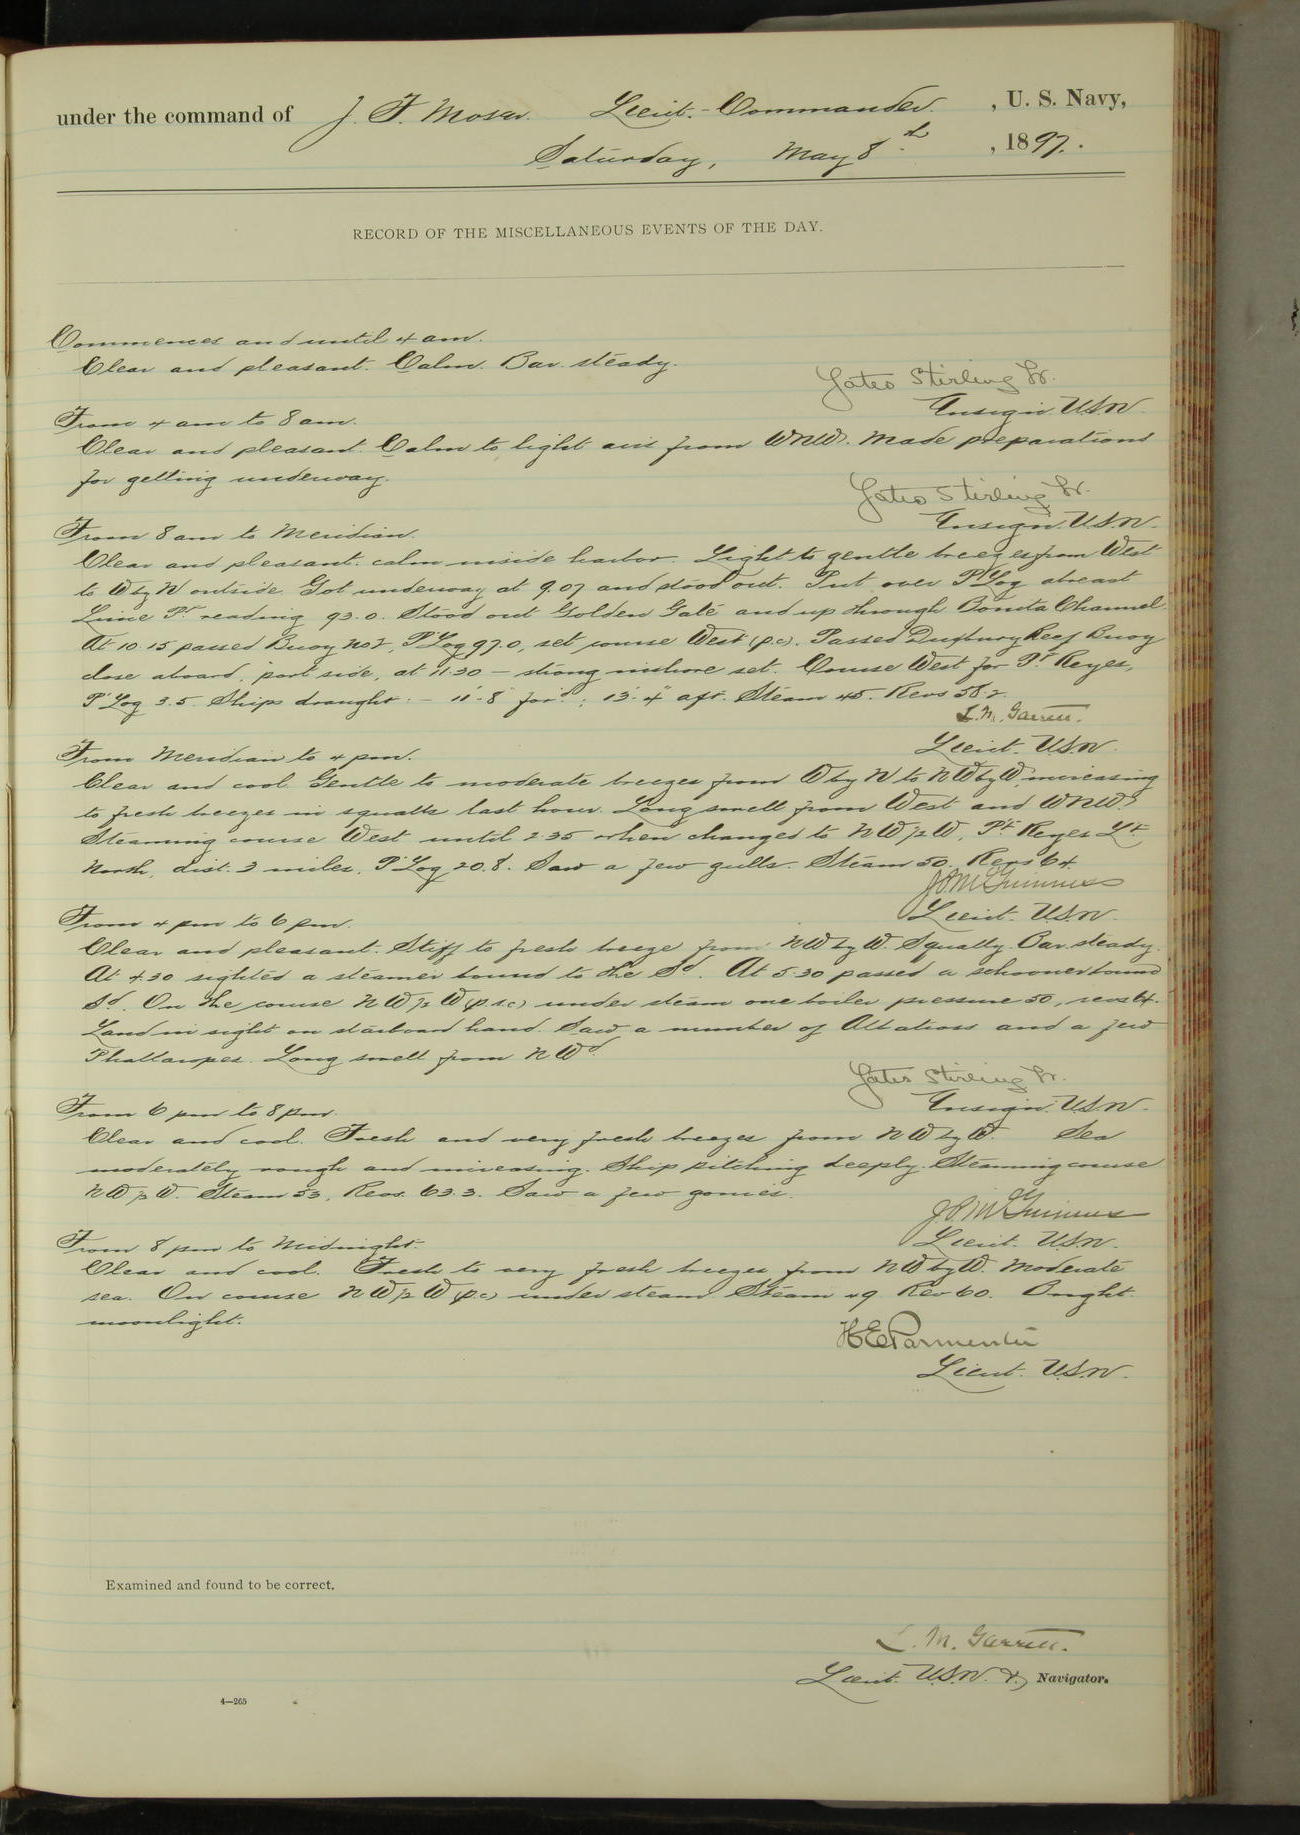 under the command of J. F. Moser Lieut.-Commander , U. S. Navy,
Saturday, May 8th , 1897.
RECORD OF THE MISCELLANEOUS EVENTS OF THE DAY.
Commences and until 4 am.
Clear and pleasant. Calm. Bar. steady.
Yates Stirling Jr.
Ensign U.S.N.
From 4 am to 8 am.
Clear and pleasant. Calm to light airs from WNW. Made preparations
for getting underway.
Yates Stirling Jr.
Ensign U.S.N.
From 8 am to Meridian.
Clear and pleasant. calm inside harbor. Light to gentle breezes from West
to WbyN outside. Got underway at 9.07 and stood out. Put over P. Log abreast
Lime Pt. reading 93.0. Stood out Golden Gate and up through Bonita Channel
At 10.15 passed Buoy No 2, P. Log 97.0, set course West (p.c.). Passed Duxbury Reef Buoy
close aboard, port side, at 11.30 – strong inshore set. Course West for Pt. Reyes,
P. Log 3.5. Ships draught: – 11'-8" for'd; 13'-4" aft. Steam 45. Revs 58.2.
L. M. Garrett.
Lieut. U.S.N.
From Meridian to 4 pm.
Clear and cool. Gentle to moderate breezes from W by N to NWbyW, increasing
to fresh breezes in squalls last hour. Long swell from West and WNW'd
Steaming course West until 2.35 when changed to NW½W, Pt. Reyes Lt.
North, dist. 3 miles, P. Log 20.8. Saw a few gulls. Steam 50. Revs 64.
Lieut. U.S.N.
From 4 pm to 6 pm.
Clear and pleasant. Stiff to fresh breeze from NWbyW. Squally. Bar. steady.
At 4.30 sighted a steamer bound to the Sd. At 5.30 passed a schooner bound
Sd. On the course NW½W (p.s.c.) under steam one boiler pressure 50, revs 64.
Land in sight on starboard hand. Saw a number of Albatross and a few
Phallaropes. Long swell from NWd.
Yates Stirling Jr.
Ensign U.S.N.
From 6 pm to 8 pm.
Clear and cool. Fresh and very fresh breezes from NWbyW. Sea
moderately rough and increasing. Ship pitching deeply. Steaming course
NW½W. Steam 53, Revs. 63.3. Saw a few gonies.
Lieut. U.S.N.
From 8 pm to Midnight.
Clear and cool. Fresh to very fresh breezes from NWbyW. Moderate
sea. On course NW½W (p.c.) under steam. Steam 49 Rev 60. Bright
moonlight.
H E Parmenter
Lieut. U.S.N.
Examined and found to be correct.
L. M. Garrett.
Lieut. U.S.N. & Navigator.
4—265